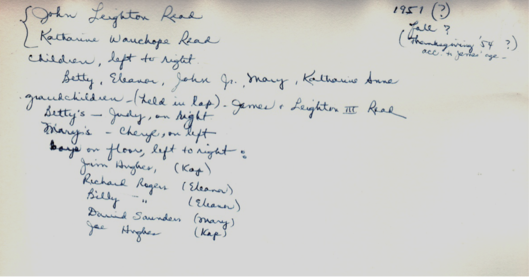 John Leighton Read
Katharine Wauchope Read
1951 (?)
Fall ?
(Thanksgiving '54 ?)
acc. to James' age -
Children, left to right.
Betty, Eleanor, John Jr., Mary, Katharine Anne
grandchildren - (held in lap) - James + Leighton III Read
Betty's - Judy, on right
Mary's - Cheryl, on left
boys on floor, left to right :
Jim Hughes, (Kap)
Richard Rogers (Eleanor)
Billy - " (Eleanor)
David Saunders (Mary)
Joe Hughes (Kap)